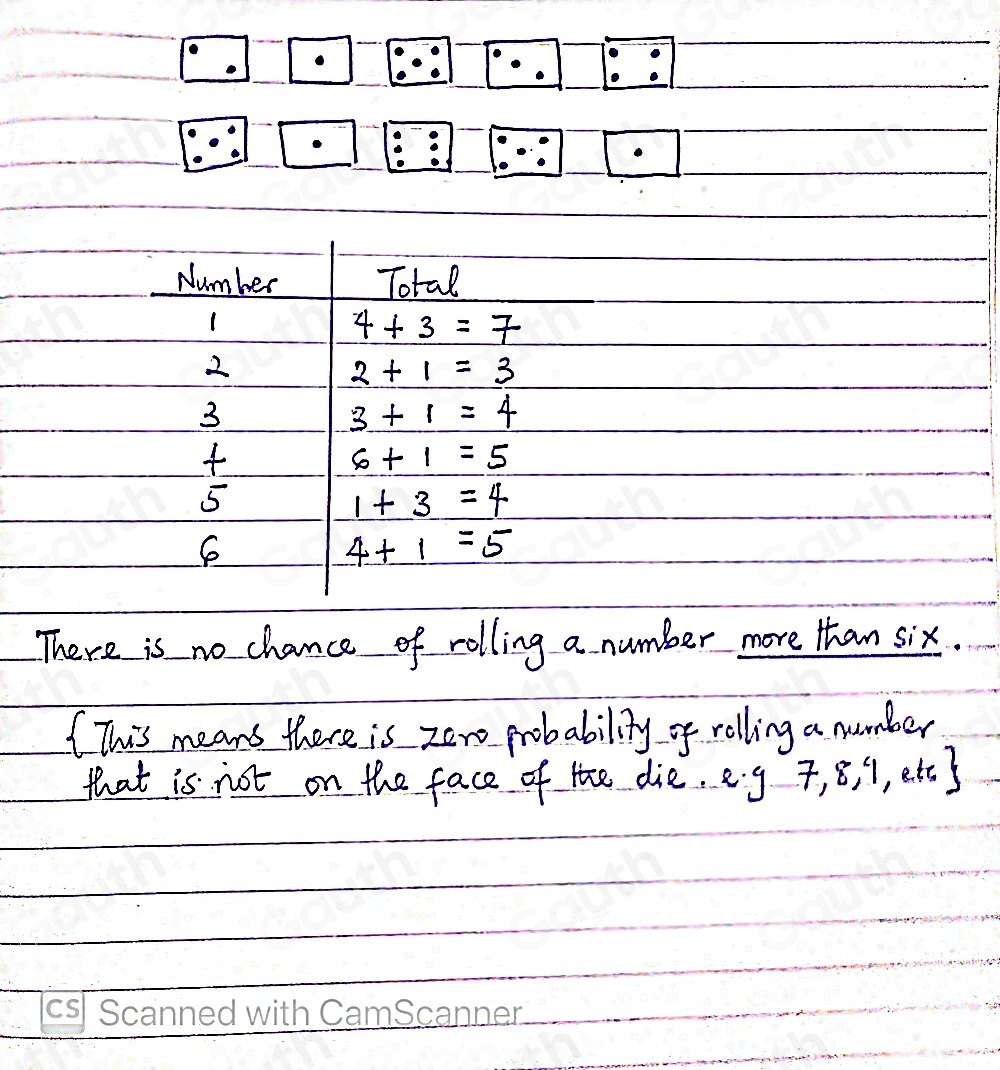 Number Total
1 4 + 3 = 7
2 2 + 1 = 3
3 3 + 1 = 4
4 6 + 1 = 5
5 1 + 3 = 4
6 4 + 1 = 5
There is no chance of rolling a number more than six.
{This means there is zero probability of rolling a number
that is not on the face of the die. e.g 7, 8, 9, etc}
CS Scanned with CamScanner
Gauth